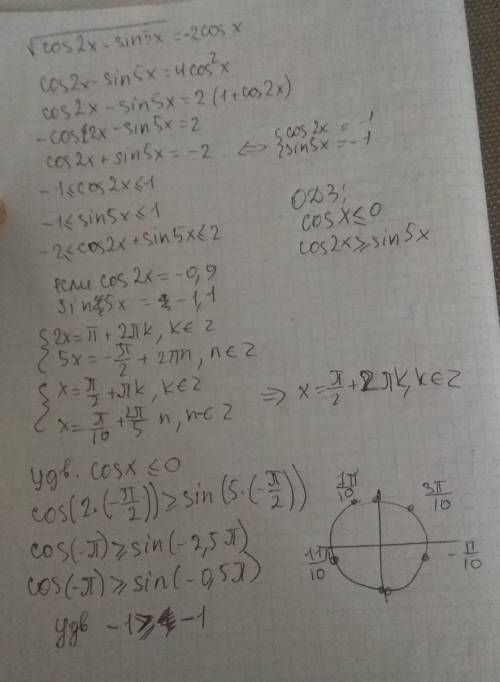 √cos2x - sin5x = -2cosx
cos2x - sin5x = 4cos²x
cos2x - sin5x = 2(1+cos2x)
-cos2x - sin5x = 2
cos2x + sin5x = -2 <=> { cos2x = -1
{ sin5x = -1
-1≤cos2x≤1
-1≤sin5x≤1
-2≤cos2x+sin5x≤2
ОДЗ:
cosx≤0
cos2x≥sin5x
если cos2x = -0,9
sin5x = -1,1
{ 2x = π + 2πk, k∈Z
{ 5x = -π/2 + 2πn, n∈Z
{ x = π/2 + πk, k∈Z
{ x = π/10 + 2π/5 n, n∈Z
=> x = π/2 + 2πk, k∈Z
удв. cosx ≤0
cos(2·(-π/2)) ≥ sin(5·(-π/2))
cos(-π) ≥ sin(-2,5π)
cos(-π) ≥ sin(-0,5π)
удв -1 ≥ -1
7π/10
3π/10
11π/10
-π/10